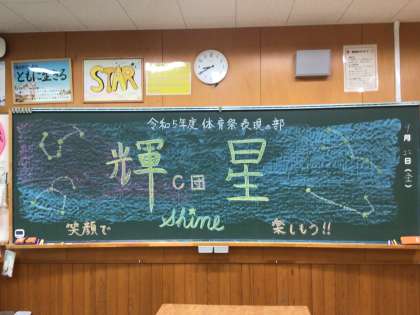 ともに生きる
STAR
令和5年度 体育祭表現の部
輝星
C団
shine
笑顔で
楽しもう!!
月
日
(金)